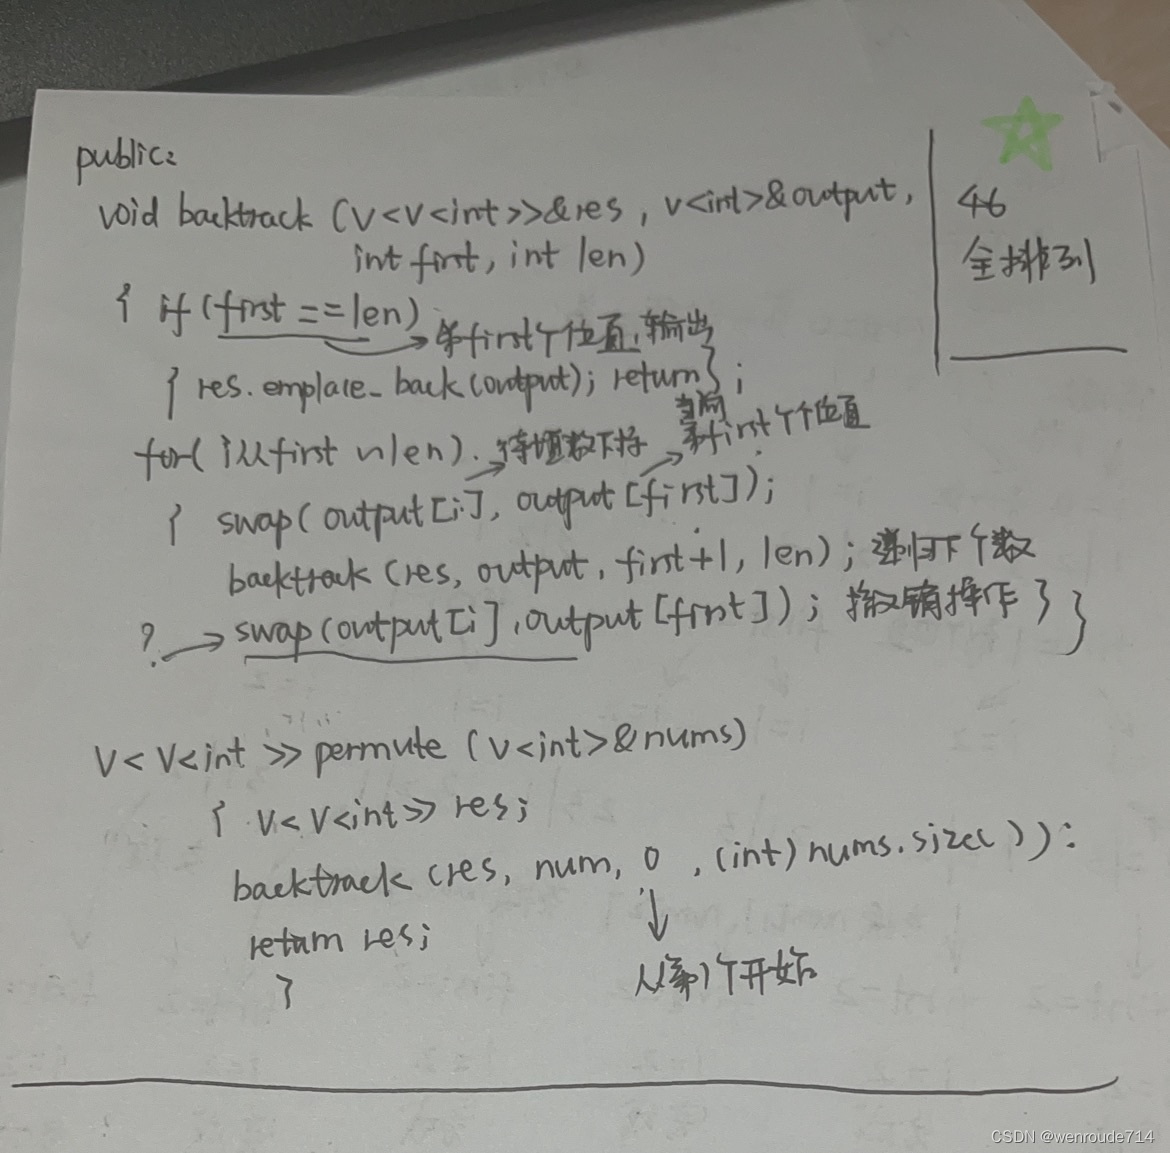 public:
void backtrack (V<V<int>>&res, v<int>&output,
int first, int len)
{ if (first == len)
第first个位置, 输出
{ res.emplace_back(output); return};
当前
for( i从first 到len).
待填数下标
第first个位置
{ swap( output[i], output [first]);
backtrack (res, output, first+1, len); 递归下个数
? → swap(output[i], output[first]); 撤销操作 } }
V< V<int >> permute (v<int>&nums)
{ V< V<int>> res;
backtrack (res, num, 0 , (int) nums.size( )):
return res;
从第1个开始
}
46
全排列
CSDN @wenroude714